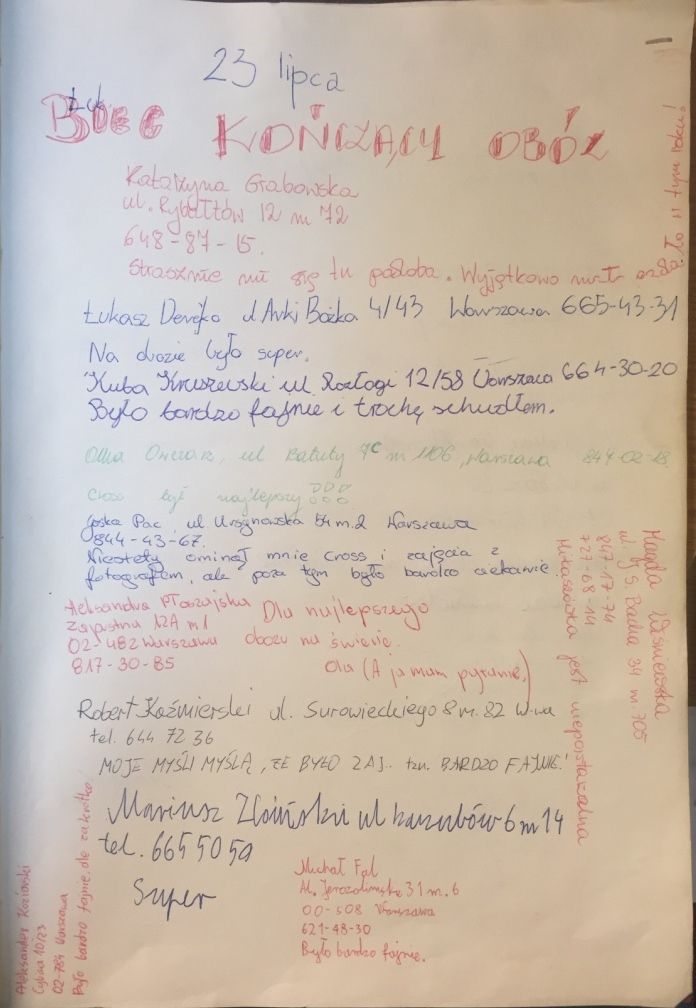 23 lipca
KOŃCZĄCY OBÓZ
Katarzyna Grabowska
ul. Rybałtów 12 m 72
648-87-15.
Strasznie mi się tu podoba. Wyjątkowo
się to w tym roku!
Łukasz 4/43 Warszawa 665-43-31
Na obozie było super.
Kuba Kruszewski ul. Rozłogi 12/58 Warszawa 664-30-20
Było bardzo fajnie i trochę schudłem.
Olka Owczarz, ul Batuty 7C m 1106, Warszawa 844-02-18
Cross był najlepszy
Gośka Pac, ul Ursynowska 54 m. 2 Warszawa
844-43-67.
Niestety ominął mnie cross i zajęcia z
fotografem, ale poza tym było bardzo ciekawie.
Aleksandra Płoszajska
Zapustna 12A m 1
02-482 Warszawa
817-30-85
Dla najlepszego
obozu na świecie.
Ola (A ja mam pytanie,)
Magda Wiśniewska
ul. J. S. Bacha 34 m. 705
847-17-74
727-68-14
jest niepowtarzalna
Robert Koźmierski ul. Surowieckiego 8 m. 82 W-wa
tel. 644 72 36
MOJE MYŚLI MYŚLĄ, ŻE BYŁO ZAJ.. tzn. BARDZO FAJNIE!
Mariusz ul kazubów 6 m 14
tel. 665 50 59
Super
Michał Fal
Al. Jerozolimskie 31 m. 6
00-508 Warszawa
621-48-30
Było bardzo fajnie.
Aleksander Koziański
Cybisa 10/23
02-784 Warszawa
Było bardzo fajnie, ale za krótko